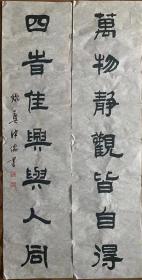 萬物靜觀皆自得
四旹佳興與人同